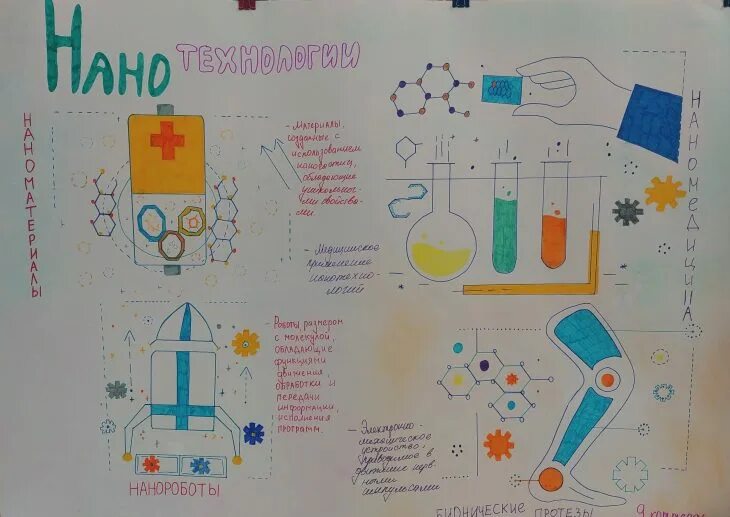 Нано
ТЕХНОЛОГИИ
НАНОМАТЕРИАЛЫ
– Материалы,
созданные с
использованием
наночастиц,
обладающие
уникальны-
ми свойства-
ми.
– Медицинское
применение
нанотехно-
логий
НАНОМЕДИЦИНА
– Роботы размером
с молекулой,
обладающие
функциями
движения,
обработки и
передачи
информации,
исполнения
программ.
НАНОРОБОТЫ
– Электронно-
механическое
устройство,
приводимое в
движение нерв-
ными
импульсами
БИОНИЧЕСКИЕ ПРОТЕЗЫ
9